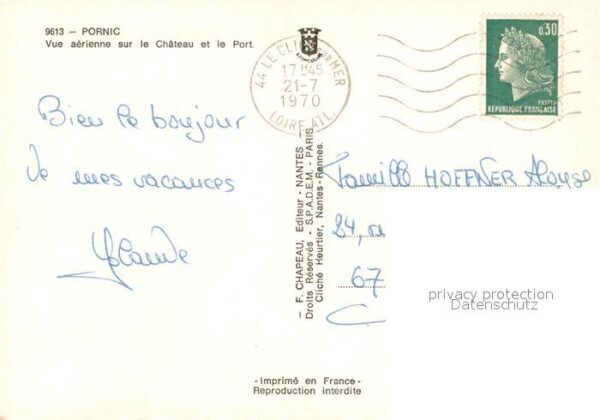 9613 – PORNIC
Vue aérienne sur le Château et le Port.
Bien le bonjour
de mes vacances
Yolande
44 LE CLION SUR MER
17H45
21-7
1970
LOIRE ATL.
0,30
POSTES
REPUBLIQUE FRANÇAISE
– F. CHAPEAU, Editeur - NANTES –
Droits Réservés - S.P.A.D.E.M. - PARIS
Cliché Heurtier, Nantes-Rennes.
Famille HOFFNER
24, ru
67
C
privacy protection
Datenschutz
-Imprimé en France-
Reproduction interdite